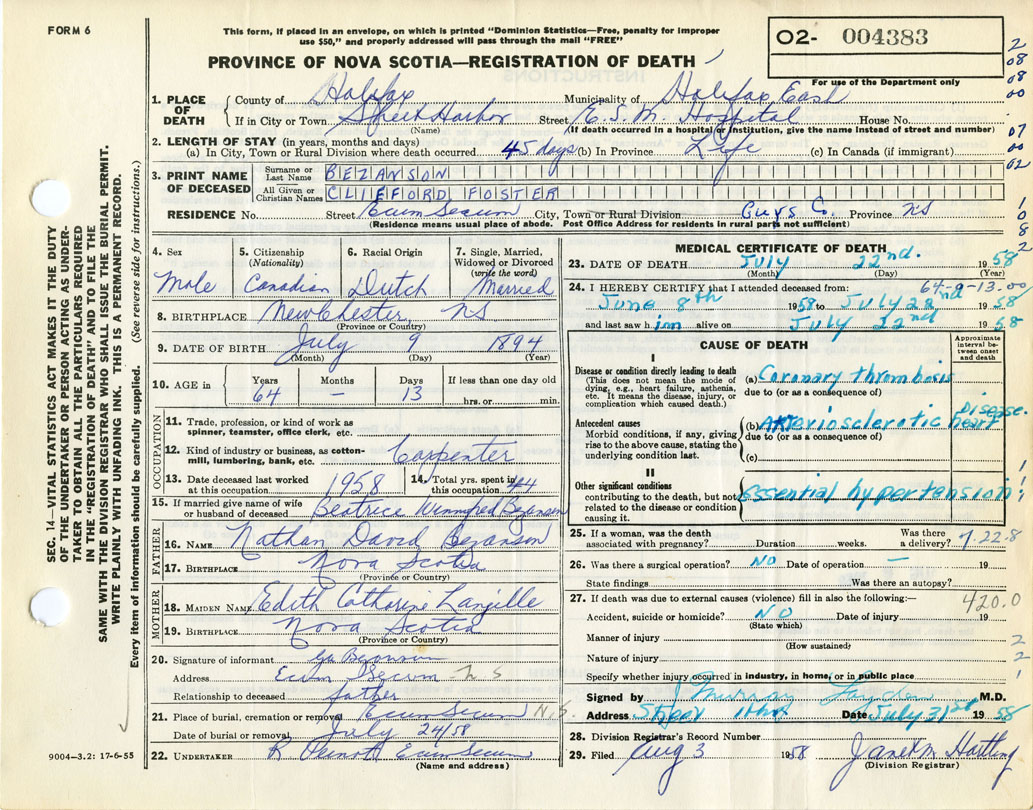 FORM 6
This form, if placed in an envelope, on which is printed "Dominion Statistics—Free, penalty for improper
use $50," and properly addressed will pass through the mail "FREE"
O2- 004383
For use of the Department only
PROVINCE OF NOVA SCOTIA—REGISTRATION OF DEATH
1. PLACE OF DEATH
County of Halifax Municipality of Halifax East
If in City or Town Sheet Harbor Street E.S.M. Hospital House No.
(Name) (If death occurred in a hospital or institution, give the name instead of street and number)
2. LENGTH OF STAY (in years, months and days)
(a) In City, Town or Rural Division where death occurred 45 days (b) In Province Life (c) In Canada (if immigrant)
3. PRINT NAME OF DECEASED
Surname or Last Name BEZANSON
All Given or Christian Names CLIFFORD FOSTER
RESIDENCE No. Street Ecum Secum City, Town or Rural Division Guys Co. Province NS
(Residence means usual place of abode. Post Office Address for residents in rural parts not sufficient)
4. Sex Male
5. Citizenship (Nationality) Canadian
6. Racial Origin Dutch
7. Single, Married, Widowed or Divorced (write the word) Married
8. BIRTHPLACE New Chester, NS
(Province or Country)
9. DATE OF BIRTH July 9 1894
(Month) (Day) (Year)
10. AGE in Years 64 Months – Days 13 If less than one day old hrs. or min.
OCCUPATION
11. Trade, profession, or kind of work as spinner, teamster, office clerk, etc.
12. Kind of industry or business, as cotton-mill, lumbering, bank, etc. Carpenter
13. Date deceased last worked at this occupation 1958
14. Total yrs. spent in this occupation 44
15. If married give name of wife or husband of deceased Beatrice Winnifred Bezanson
FATHER
16. NAME Nathan David Bezanson
17. BIRTHPLACE Nova Scotia
(Province or Country)
MOTHER
18. MAIDEN NAME Edith Catharine Langille
19. BIRTHPLACE Nova Scotia
(Province or Country)
20. Signature of informant Bezanson
Address Ecum Secum N S
Relationship to deceased father
21. Place of burial, cremation or removal Ecum Secum N.S.
Date of burial or removal July 24/58
22. UNDERTAKER Ecum Secum
(Name and address)
MEDICAL CERTIFICATE OF DEATH
23. DATE OF DEATH July 22nd. 1958
(Month) (Day) (Year)
64-0-13.00
24. I HEREBY CERTIFY that I attended deceased from:
June 8th 1958 to July 22nd 1958
and last saw him alive on July 22nd 1958
CAUSE OF DEATH
Approximate interval between onset and death
I
Disease or condition directly leading to death
(This does not mean the mode of dying, e.g., heart failure, asthenia, etc. It means the disease, injury, or complication which caused death.)
(a) Coronary thrombosis
due to (or as a consequence of)
Antecedent causes
Morbid conditions, if any, giving rise to the above cause, stating the underlying condition last.
(b) Arteriosclerotic heart Disease.
due to (or as a consequence of)
(c)
II
Other significant conditions
contributing to the death, but not related to the disease or condition causing it.
Essential hypertension
25. If a woman, was the death associated with pregnancy? Duration weeks. Was there a delivery?
7.22.8
26. Was there a surgical operation? NO Date of operation — 19
State findings Was there an autopsy?
27. If death was due to external causes (violence) fill in also the following:—
420.0
Accident, suicide or homicide? NO Date of injury 19
(State which)
Manner of injury
(How sustained)
Nature of injury
Specify whether injury occurred in industry, in home, or in public place
Signed by M.D.
Address Date July 31st 1958
28. Division Registrar's Record Number
29. Filed Aug 3 1958 Janet M. Hartling
(Division Registrar)
SEC. 14—VITAL STATISTICS ACT MAKES IT THE DUTY
OF THE UNDERTAKER OR PERSON ACTING AS UNDER-
TAKER TO OBTAIN ALL THE PARTICULARS REQUIRED
IN THE "REGISTRATION OF DEATH" AND TO FILE THE
SAME WITH THE DIVISION REGISTRAR WHO SHALL ISSUE THE BURIAL PERMIT.
WRITE PLAINLY WITH UNFADING INK. THIS IS A PERMANENT RECORD.
Every item of information should be carefully supplied. (See reverse side for instructions.)
9004—3.2: 17-6-55
2
08
08
00
07
00
02
1
0
8
2